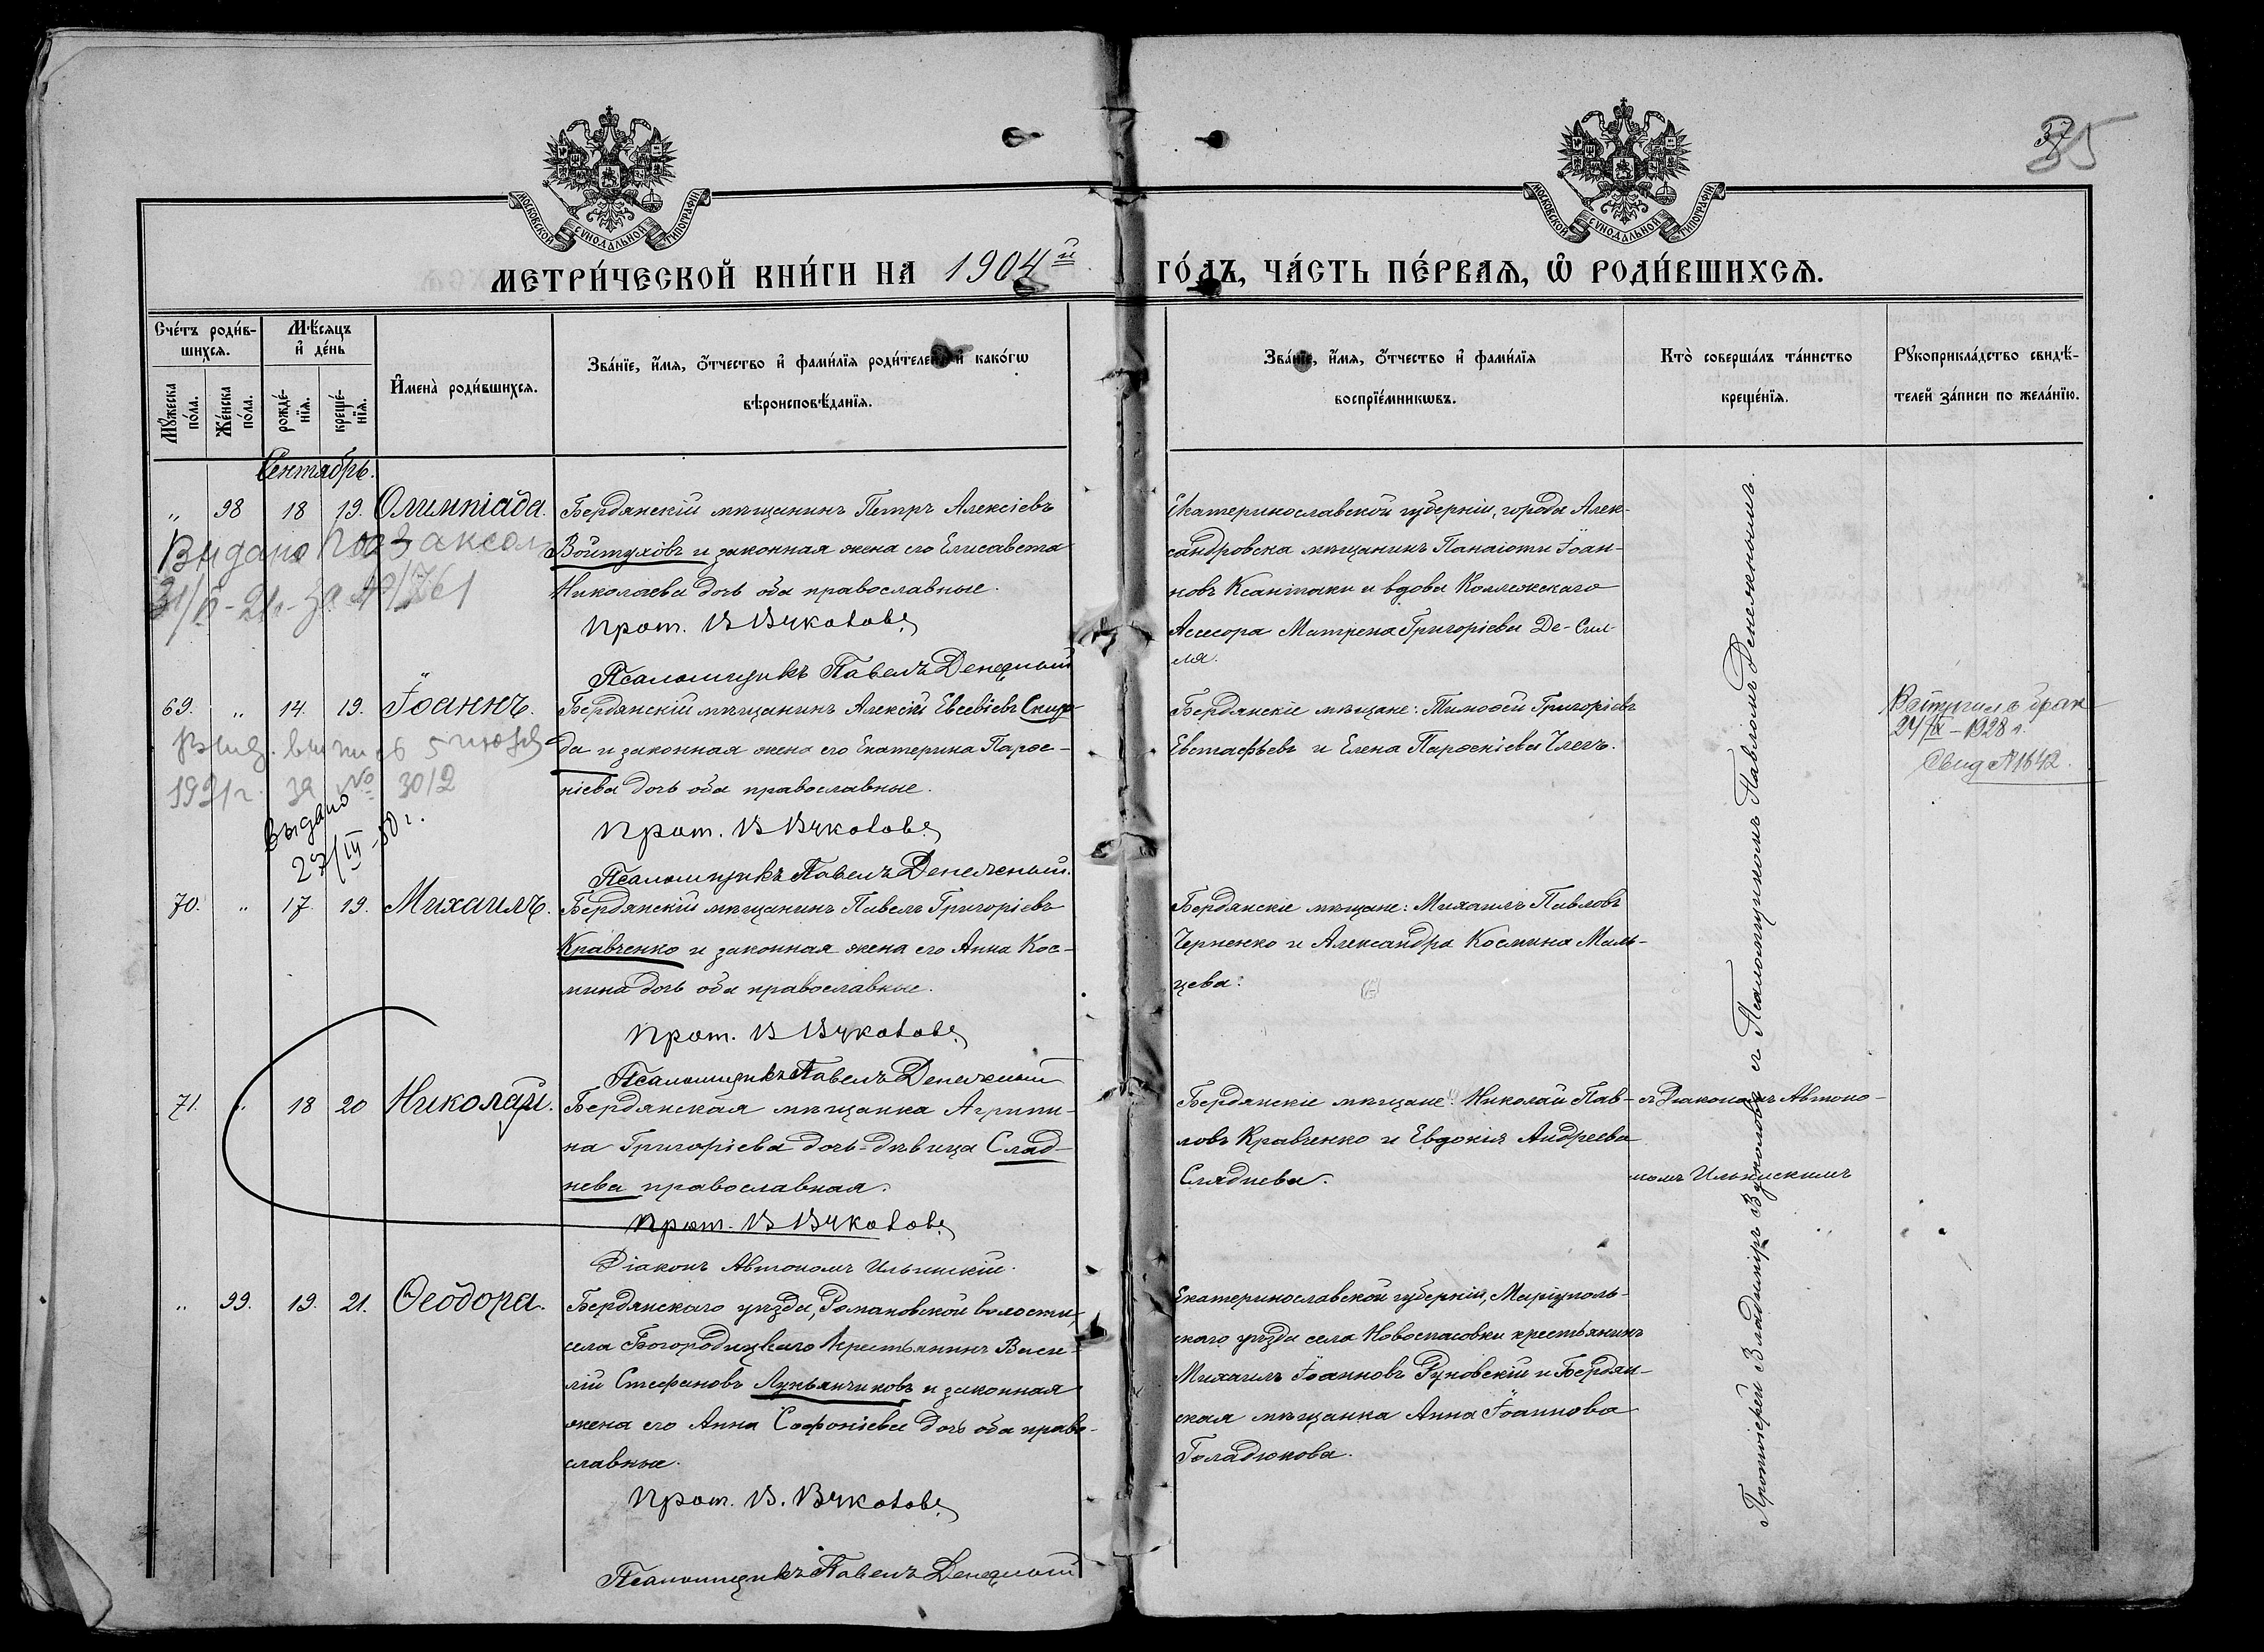 37
35
МОСКОВСКОЙ СУНОДАЛЬНОЙ ТИПОГРАФІИ
МОСКОВСКОЙ СУНОДАЛЬНОЙ ТИПОГРАФІИ
МЕТРИ́ЧЕСКОЙ КНИ́ГИ НА 1904й
ГО́ДЪ, ЧА́СТЬ ПЕ́РВАѦ, Ѡ҆ РОДИ́ВШИХСѦ.
Сче́тъ роди́в-
шихсѧ.
Мѣ́сѧцъ
и҆ де́нь
Мꙋ́жеска
по́ла.
Же́нска
по́ла.
рожде́-
нїѧ.
креще́-
нїѧ.
И҆мена̀ роди́вшихсѧ.
Зва́нїе, и҆́мѧ, ѻ҆́тчество и҆ фами́лїѧ роди́телей и҆ како́гѡ
вѣроисповѣ́данїѧ.
Зва́нїе, и҆́мѧ, ѻ҆́тчество и҆ фами́лїѧ
воспрїе́мникѡвъ.
Кто̀ соверша́лъ та́инство
креще́нїѧ.
Рꙋкоприкла́дство свидѣ́-
телей за́писи по жела́нїю.
Сентябрь.
„ 98 18 19. Олимпіада.
Бердянскій мѣщанинъ Петръ Алексіевъ
Войтуховъ и законная жена его Елисавета
Николаева дочь оба православные.
Прот. В Вуколовъ
Псаломщикъ Павелъ Денежный
Екатеринославской губерніи, города Алек-
сандровска мѣщанинъ Панаіоти Іоан-
новъ Ксантаки и вдова Коллежскаго
Асесора Матрена Григоріева Де-Сил-
ля.
Выдано
69. „ 14. 19. Іоаннъ.
Бердянскій мѣщанинъ Алексій Евсевіевъ Скир-
да и законная жена его Екатерина Пароѳ-
ніева дочь оба православные.
Прот. В Вуколовъ
Псаломщикъ Павелъ Денежный.
Бердянскіе мѣщане: Тимоѳей Григоріевъ
Евстафьевъ и Елена Пароѳніева Члекъ.
Вступил в брак
24/IX – 1928 г.
Свид № 1642.
1921 г. за № 3012
Выдано
27/III -50 г.
70. „ 17 19. Михаилъ.
Бердянскій мѣщанинъ Павелъ Григоріевъ
Кравченко и законная жена его Анна Кос-
мина дочь оба православные.
Прот. В Вуколовъ
Псаломщикъ Павелъ Денежный
Бердянскіе мѣщане: Михаилъ Павловъ
Черненко и Александра Космина Маль-
цева.
71. „ 18 20 Николай.
Бердянская мѣщанка Агрипи-
на Григоріева дочь-дѣвица Слад-
нева православная.
Прот. В Вуколовъ
Діаконъ Автономъ Ильинскій.
Бердянскіе мѣщане: Николай Пав-
ловъ Кравченко и Евдокія Андреева
Сладнева.
съ Діакономъ Автоно-
момъ Ильинскимъ
„ 99. 19. 21. Ѳеодора.
Бердянскаго уѣзда, Романовской волости,
села Богородицкаго крестьянинъ Васи-
лій Стефановъ Лукьянчиковъ и законная
жена его Анна Софоніева дочь оба право-
славные.
Прот. В. Вуколовъ
Псаломщикъ Павелъ Денежный
Екатеринославской губерніи, Маріуполь-
скаго уѣзда села Новоспасовки крестьянинъ
Михаилъ Іоанновъ Руновскій и Бердян-
ская мѣщанка Анна Іоаннова
Голадюкова.
Протоіерей Владиміръ Вуколовъ съ Псаломщикомъ Павломъ Денежнымъ.